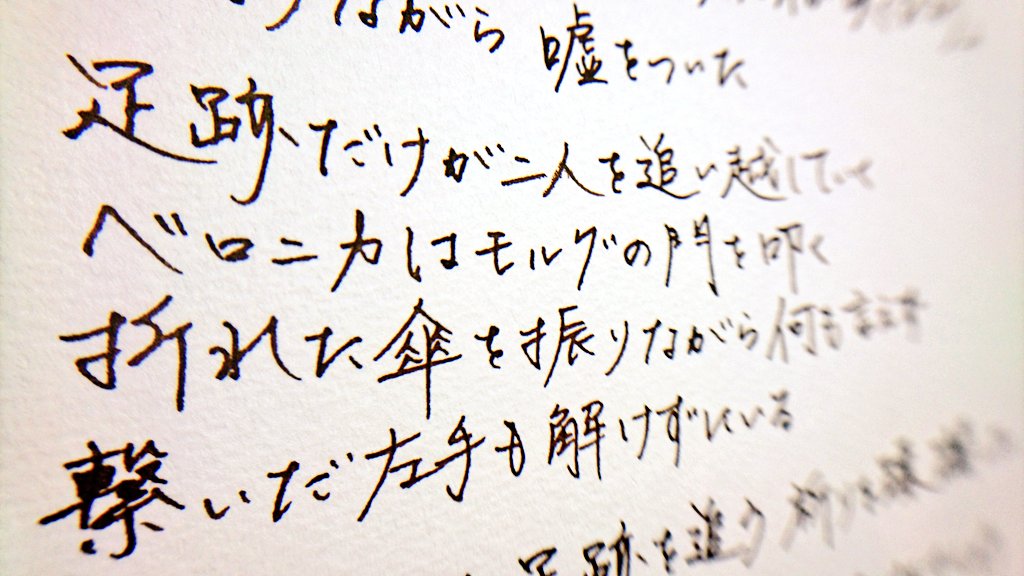 りながら 嘘をついた
足跡だけが二人を追い越して
ベロニカはモルグの門を叩く
折れた傘を振りながら何も言えず
繋いだ左手も解けずにいる
足跡を追う